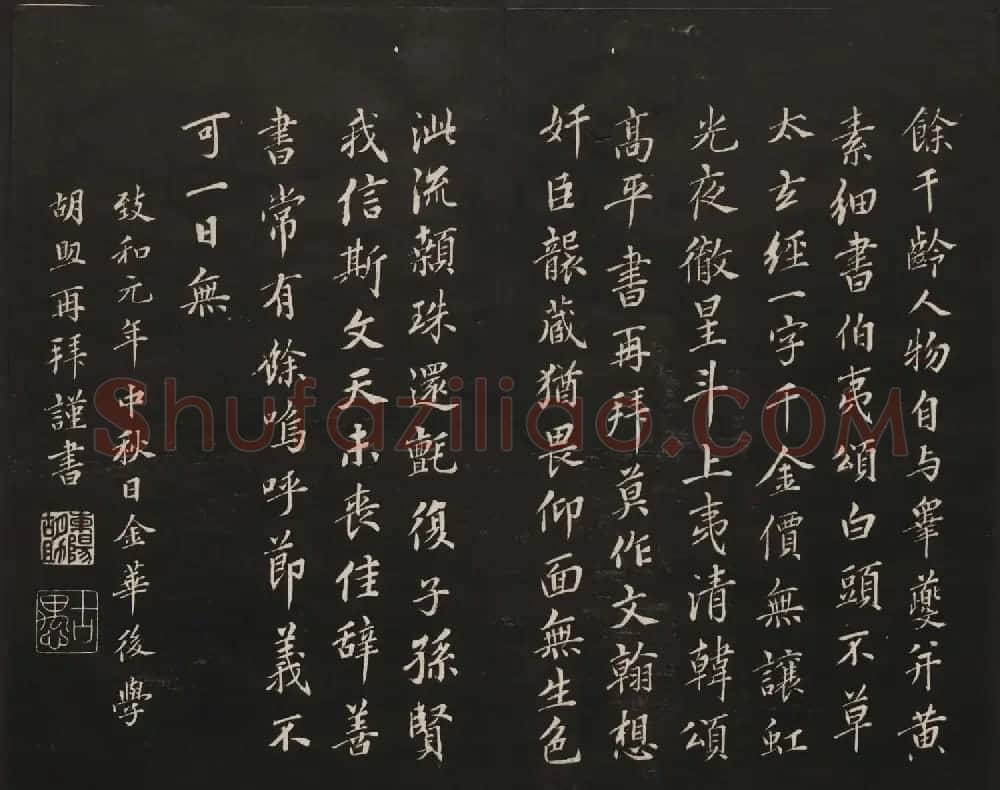 餘千齡人物自与夔夔并黄
素細書伯夷頌白頭不草
太玄經一字千金價無讓虹
光夜徹星斗上夷清韓頌
髙平書再拜莫作文翰想
奸臣襲藏猶畏仰面無生色
泚流顙珠還氈復子孫賢
我信斯文天未丧佳辞善
書常有餘嗚呼節義不
可一日無
致和元年中秋日金華後學
胡助再拜謹書
東陽胡助
古愚
Shufaziliao.COM